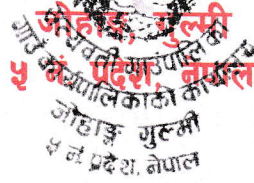 जोहाङ्ग, गुल्मी
५ नं. प्रदेश, नेपाल
गाउँ कार्यपालिकाको कार्यालय
जोहाङ्ग गुल्मी
५ नं. प्रदेश, नेपाल